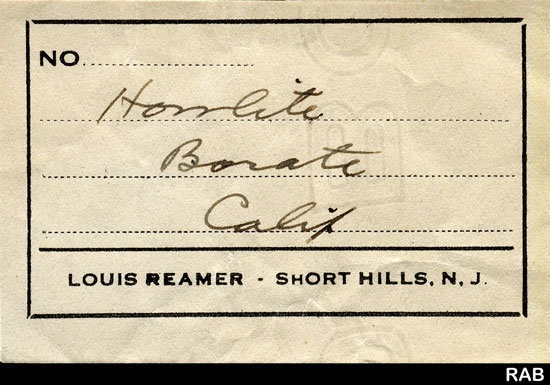 NO...............
Howlite
Borate
Calif
LOUIS REAMER - SHORT HILLS, N, J.
RAB